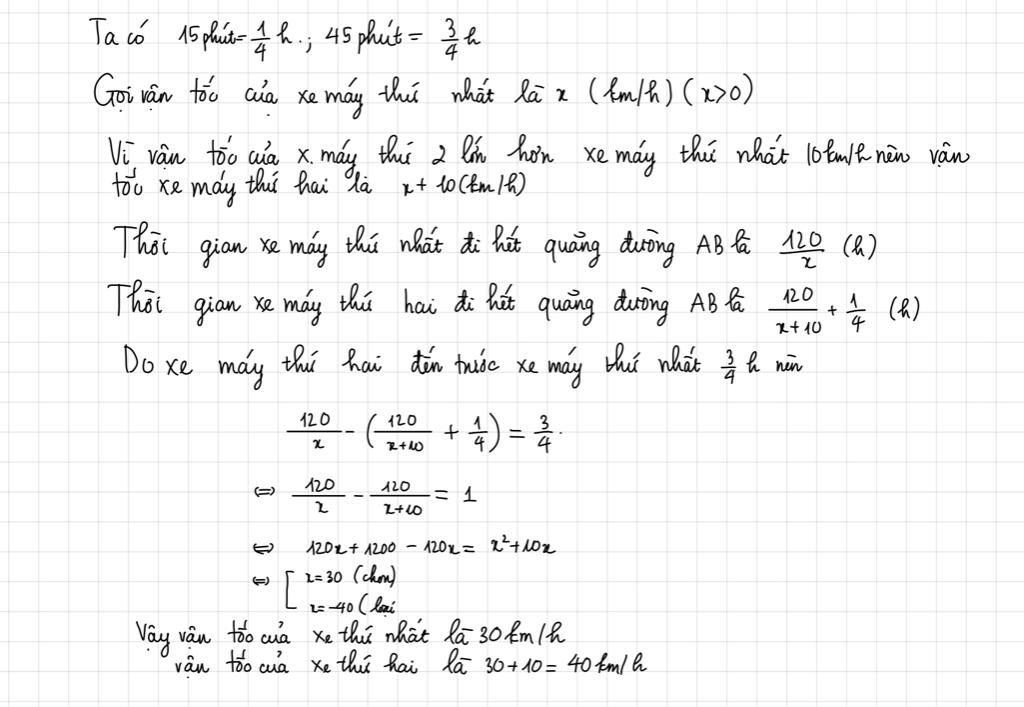 Ta có 15 phút = 1/4 h.; 45 phút = 3/4 h
Gọi vận tốc của xe máy thứ nhất là x (km/h) (x>0)
Vì vận tốc của x. máy thứ 2 lớn hơn xe máy thứ nhất 10km/h nên vận
tốc xe máy thứ hai là x + 10(km/h)
Thời gian xe máy thứ nhất đi hết quãng đường AB là 120/x (h)
Thời gian xe máy thứ hai đi hết quãng đường AB là 120/(x+10) + 1/4 (h)
Do xe máy thứ hai đến trước xe máy thứ nhất 3/4 h nên
120/x - (120/(x+10) + 1/4) = 3/4.
⇔ 120/x - 120/(x+10) = 1
⇔ 120x + 1200 - 120x = x² + 10x
⇔ [ x = 30 (chọn)
x = -40 (loại
Vậy vận tốc của xe thứ nhất là 30 km/h
vận tốc của xe thứ hai là 30+10 = 40 km/h